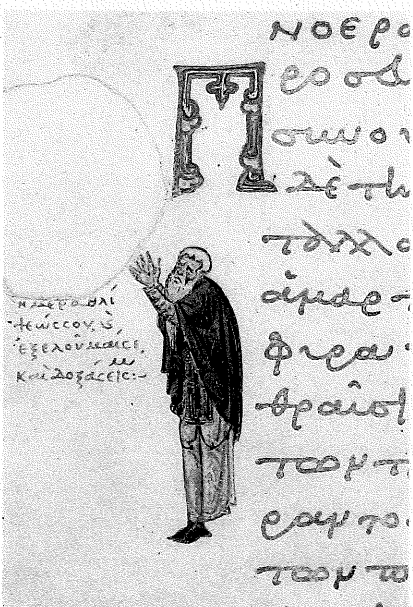 ΝΟΕΡΟ
Π ρο σ
συνο
δὲ τὴ
πολλο
ἁμαρ
φιρα
θραῖσ
τῶν τ
ραν το
τῶν το
ἡμέρα θλί
ψεώς σου, ϗ
ἐξελοῦμαί σε,
καὶ δοξάσεις:-